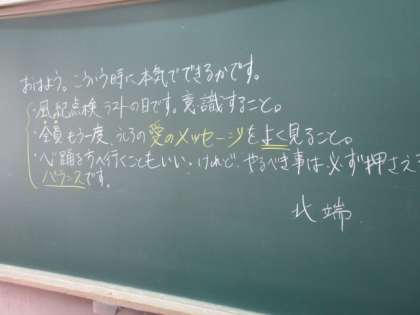 おはよう。こういう時に本気でできるかです。
・風紀点検ラストの日です。意識すること。
・全員もう一度、うしろの愛のメッセージをよく見ること。
・心踊る方へ行くこともいい。けれど、やるべき事は必ず押さえ
バランスです。
北端